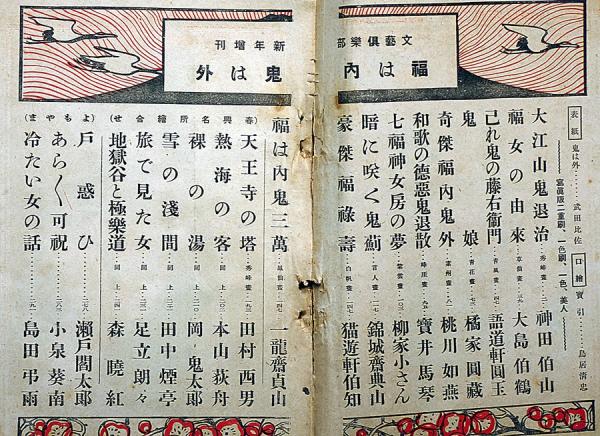 文藝俱樂部
新年増刊
福は內
鬼は外
表紙 鬼は外……武田比佐
口繪 寶引……鳥居清忠
寫眞版二重刷、一色刷、一色、美人
大江山鬼退治 (秀峰畫) 神田伯山
福女の由來 大島伯鶴
己れ鬼の藤右衞門 (青風畫) 語道軒圓玉
鬼娘 (青花畫) 橘家圓藏
奇傑福內鬼外 桃川如燕
和歌の德惡鬼退散 寶井馬琴
七福神女房の夢 (紫雲畫) 柳家小さん
暗に咲く鬼薊 錦城齋典山
豪傑福祿壽 (白帆畫) 猫遊軒伯知
福は內鬼三萬 一龍齋貞山
(春興名所繪合せ)
天王寺の塔 (秀峰畫) 田村西男
熱海の客 (同上) 本山荻舟
裸の湯 (同上) 岡鬼太郞
雪の淺間 (同上) 田中煙亭
旅で見た女 (同上) 足立朗々
地獄谷と極樂道 (同上) 森曉紅
(よもやま)
戶惑ひ 瀨戶閻太郞
あら〱可祝 小泉葵南
冷たい女の話 島田弔雨